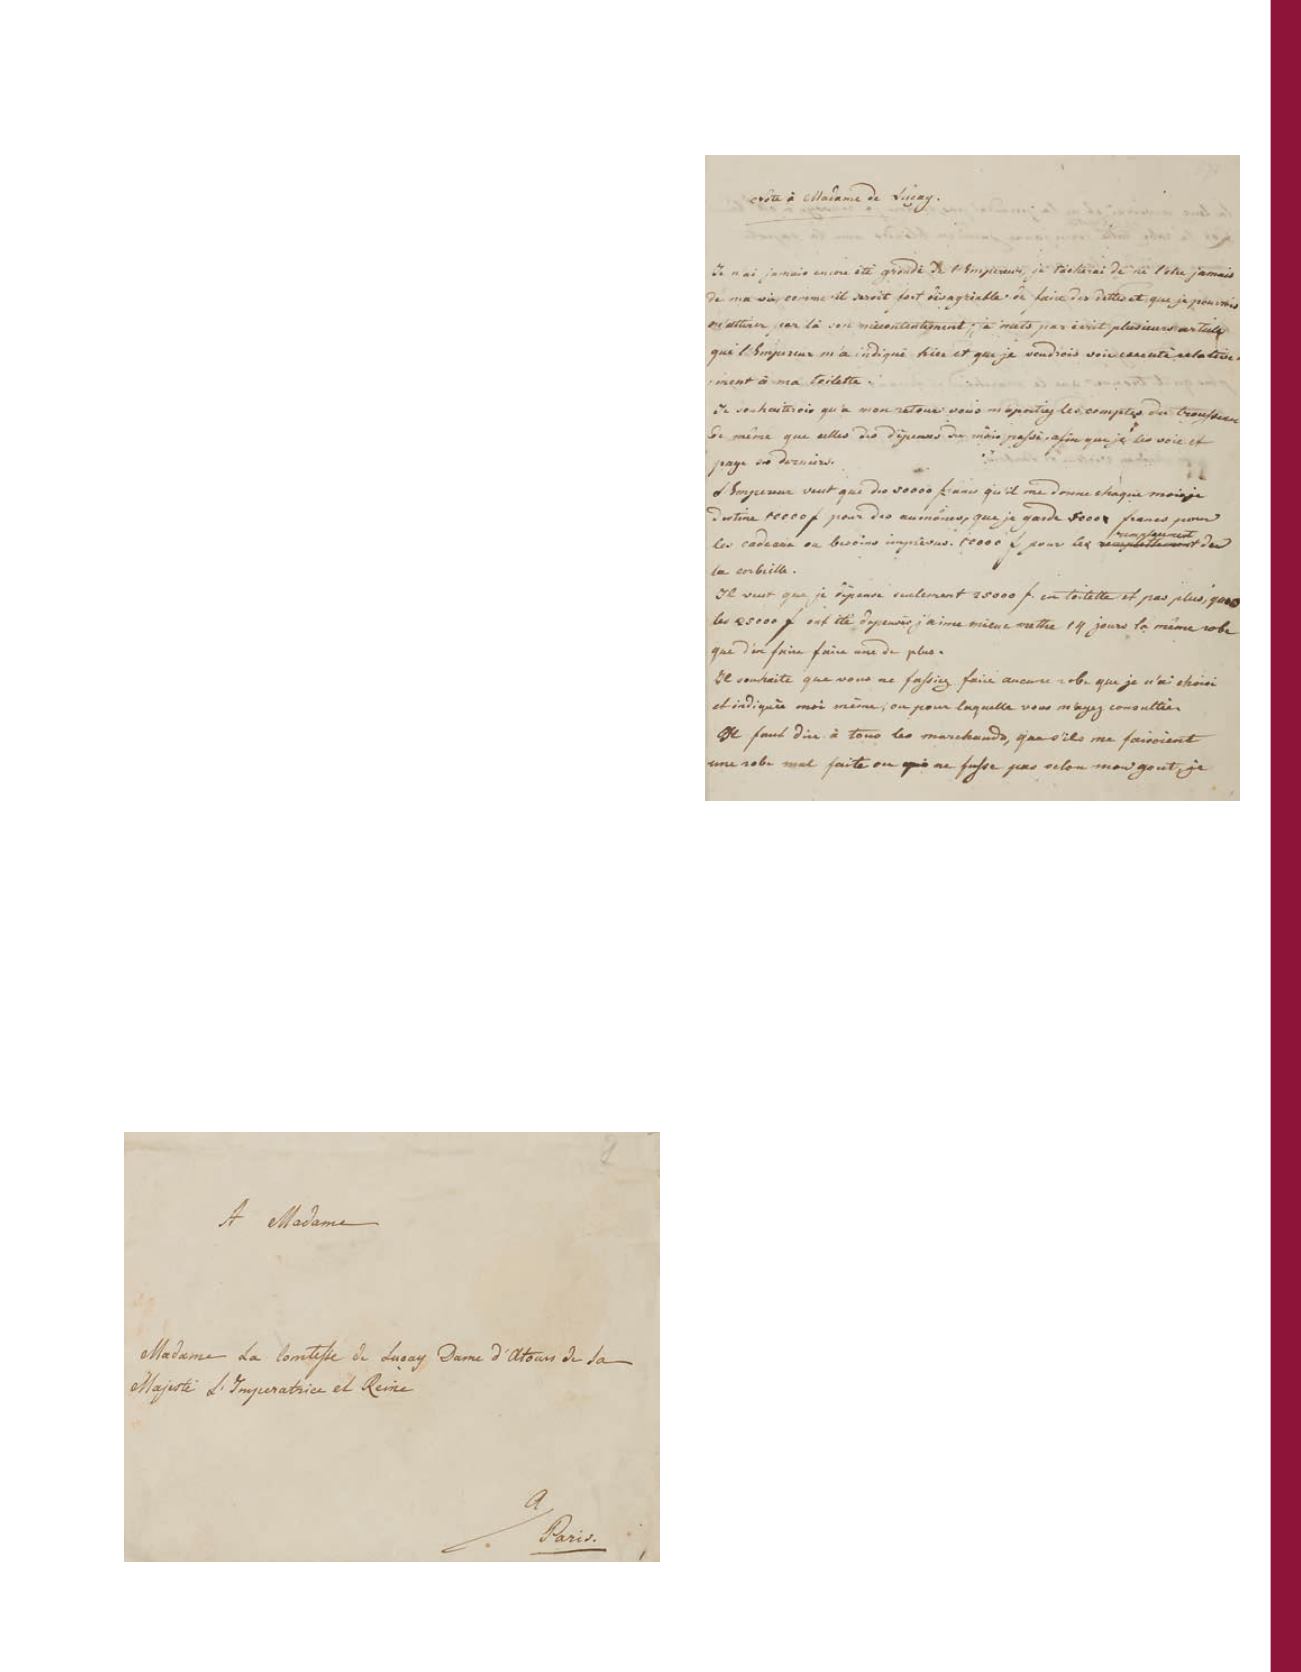 Note à Madame de Luçay.
Je n'ai jamais encore été grondé de l'Empereur, je tacherai de ne l'être jamais
de ma vie, comme il seroit fort désagréable de faire des dettes et que je pourrois
m'attirer par là son mécontentement, je mets par écrit plusieurs article
que l'Empereur m'a indiqué hier et que je voudrois voir executé relative-
ment à ma toilette.
Je souhaiterois qu'a mon retour vous m'aportiez les comptes du trousseau
de même que celles des dépenses du mois passé, afin que je les voie et
paye ses derniers.
L'Empereur veut que des 50000 francs qu'il me donne chaque mois je
destine 10000 f pour des aumônes, que je garde 5000 francs pour
les cadeaux ou besoins imprévus. 10000 f pour les remplacement de
la corbeille.
Il veut que je dépense seulement 25000 f. en toilette et pas plus, quand
les 25000 f ont été dépensés, j'aime mieux mettre 14 jours la même robe
que d'en faire faire une de plus.
Il souhaite que vous ne fassiez faire aucune robe que je n'ai choisi
et indiquée moi même, ou pour laquelle vous m'ayez consultée.
Il faut dire à tous les marchands, que s'ils me faisoient
une robe mal faite ou qui ne fusse pas selon mon gout, je
A Madame
Madame La Comtesse de Luçay Dame d'Atours de Sa
Majesté L'Imperatrice et Reine
A
Paris.